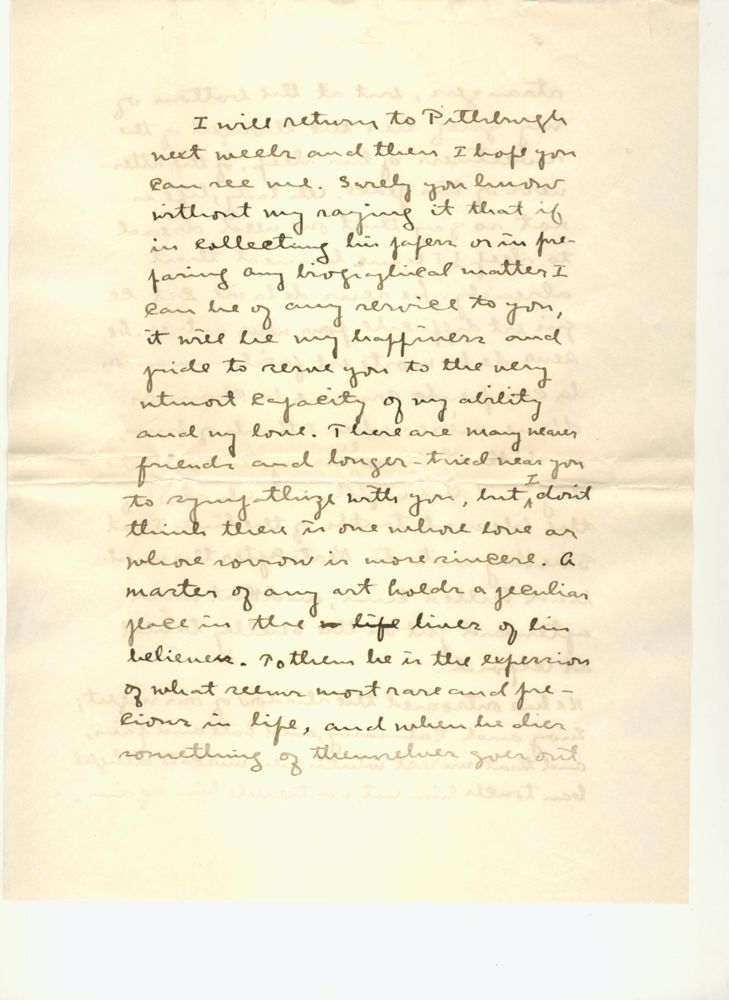 I will return to Pittsburgh
next week and then I hope you
can see me. Surely you know
without my saying it that if
in collecting his papers or in pre-
paring any biographical matter I
can be of any service to you,
it will be my happiness and
pride to serve you to the very
utmost capacity of my ability
and my love. There are many nearer
friends and longer-tried near you
to sympathize with you, but I don't
think there is one whose love or
whose sorrow is more sincere. A
master of any art holds a peculiar
place in the life lives of his
believers. To them he is the expression
of what seems most rare and pre-
cious in life, and when he dies
something of themselves goes out